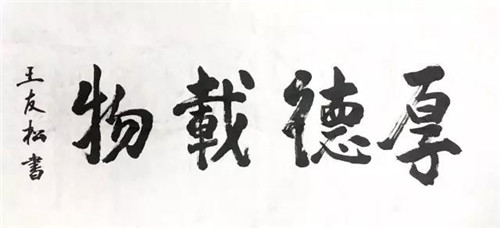 厚德載物
王友松書